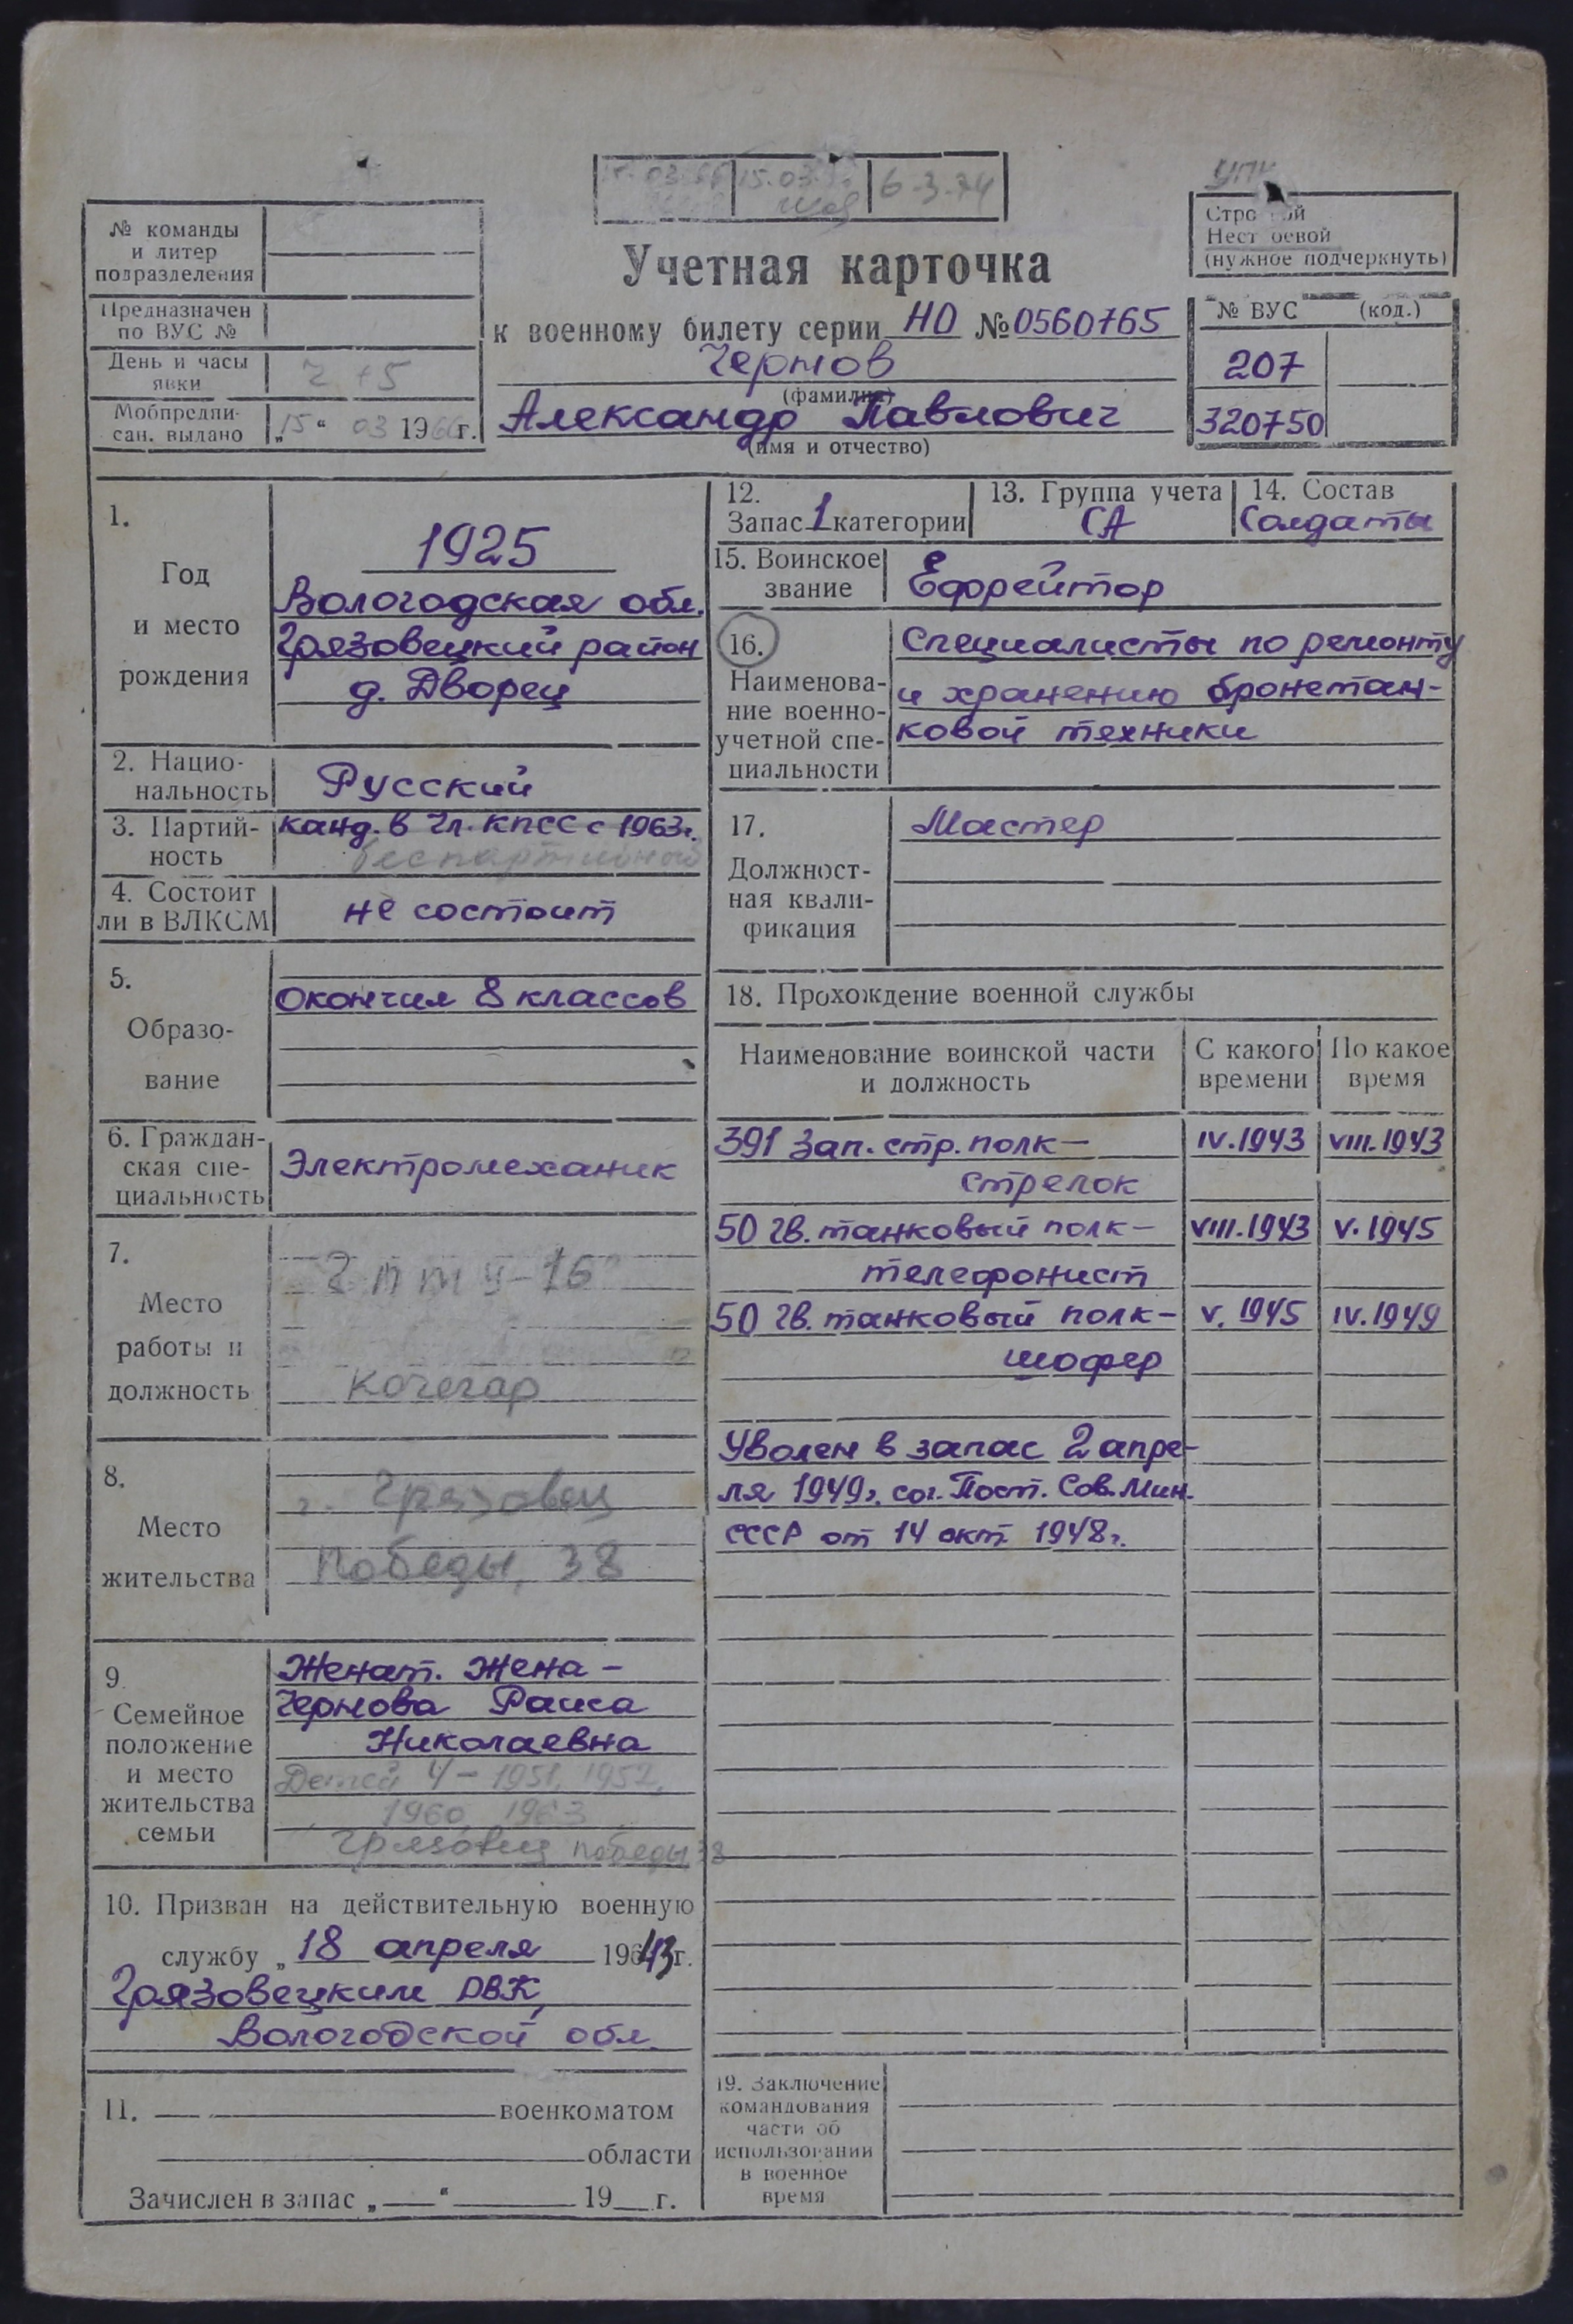 15.03
6-3-74
УПК
№ команды
и литер
подразделения
Предназначен
по ВУС №
День и часы
явки
Ч +5
Мобпредпи-
сан. выдано „15“ 03 1966г.
Учетная карточка
к военному билету серии НО № 0560765
Чернов
(фамилия)
Александр Павлович
(имя и отчество)
Строевой
Нестроевой
(нужное подчеркнуть)
№ ВУС (код.)
207
320750
1.
Год
и место
рождения
1925
Вологодская обл.
Грязовецкий район
д. Дворец
2. Нацио-
нальность
Русский
3. Партий-
ность
канд. в чл. КПСС с 1963г.
беспартийный
4. Состоит
ли в ВЛКСМ
не состоит
5.
Образо-
вание
окончил 8 классов
6. Граждан-
ская спе-
циальность
Электромеханик
7.
Место
работы и
должность
ГПТУ-16
кочегар
8.
Место
жительства
г. Грязовец
Победы, 38
9.
Семейное
положение
и место
жительства
семьи
Женат. Жена –
Чернова Раиса
Николаевна
Детей 4 – 1951, 1957,
1960, 1963
Грязовец Победы 38
10. Призван на действительную военную
службу „18 апреля 19643г.
Грязовецким РВК,
Вологодской обл.
11. военкоматом
области
Зачислен в запас „ “ 19 г.
12.
Запас 1 категории
13. Группа учета
СА
14. Состав
Солдаты
15. Воинское
звание
Ефрейтор
16.
Наименова-
ние военно-
учетной спе-
циальности
Специалисты по ремонту
и хранению бронетан-
ковой техники
17.
Должност-
ная квали-
фикация
Мастер
18. Прохождение военной службы
Наименование воинской части
и должность
С какого
времени
По какое
время
391 зап. стр. полк – IV.1943 VIII.1943
стрелок
50 гв. танковый полк – VIII.1943 V.1945
телефонист
50 гв. танковый полк – V.1945 IV.1949
шофер
Уволен в запас 2 апре-
ля 1949г. сог. Пост. Сов. Мин.
СССР от 14 окт. 1948г.
19. Заключение
командования
части об
использовании
в военное
время